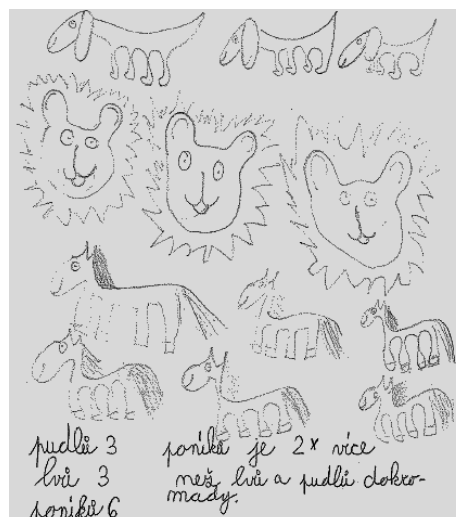 pudlů 3
lvů 3
poníků 6
poníků je 2× více
než lvů a pudlů dokro-
mady.